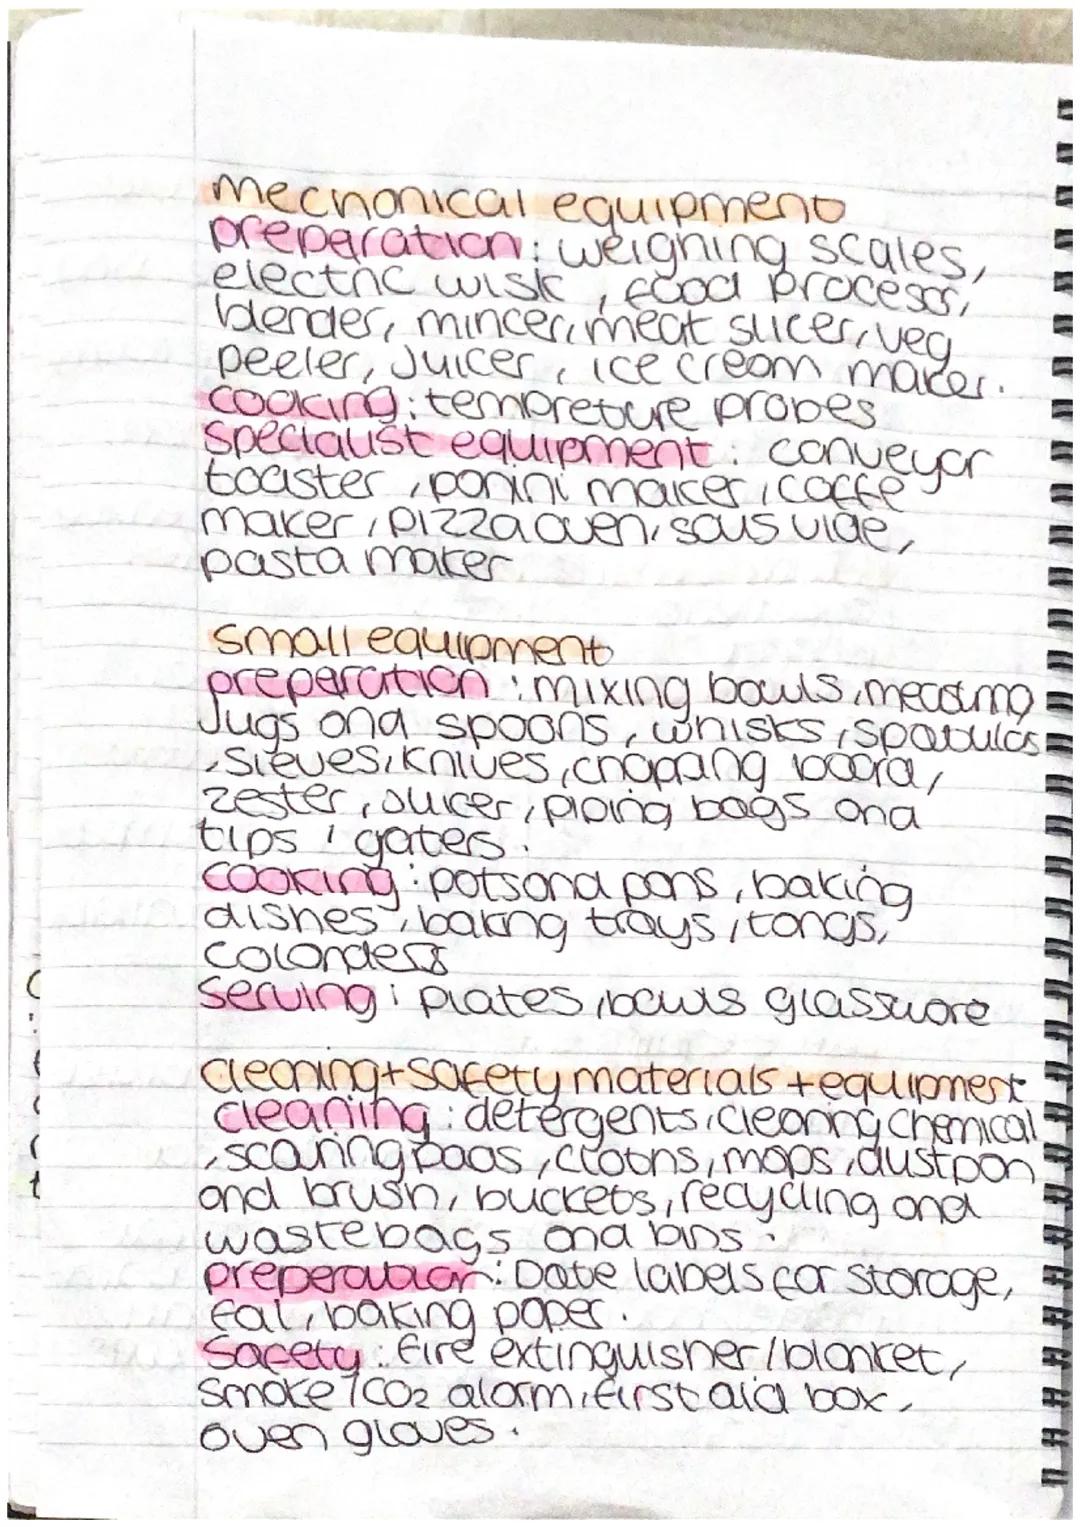 mechonical equipment
preparation: weighing scales,
electric wisk, food processr,
blender, mincer, meat slicer, veg
peeler, juicer, ice cream maker.
cooking: tempreture probes
specialist equipment: conveyor
toaster, panini maker, coffe
maker, pizza oven, sous vide,
pasta maker
small equipment
preperation: mixing bowls, measuring
Jugs and spoons, whisks, spatulas
, sieves, knives, chopping board,
zester, juicer, piping bags and
tips, gaters.
cooking: pots and pans, baking
dishes, baking trays, tongs,
colanders
serving: plates, bowls glassware
cleaning + safety materials + equipment
cleaning: detergents, cleaning chemical
, scouring pads, cloths, mops, dustpan
and brush, buckets, recycling and
wastebags and bins.
preperation: Date labels for storage,
foil, baking paper.
safety: fire extinguisher/blanket,
smoke/CO2 alarm, first aid box,
oven gloves.